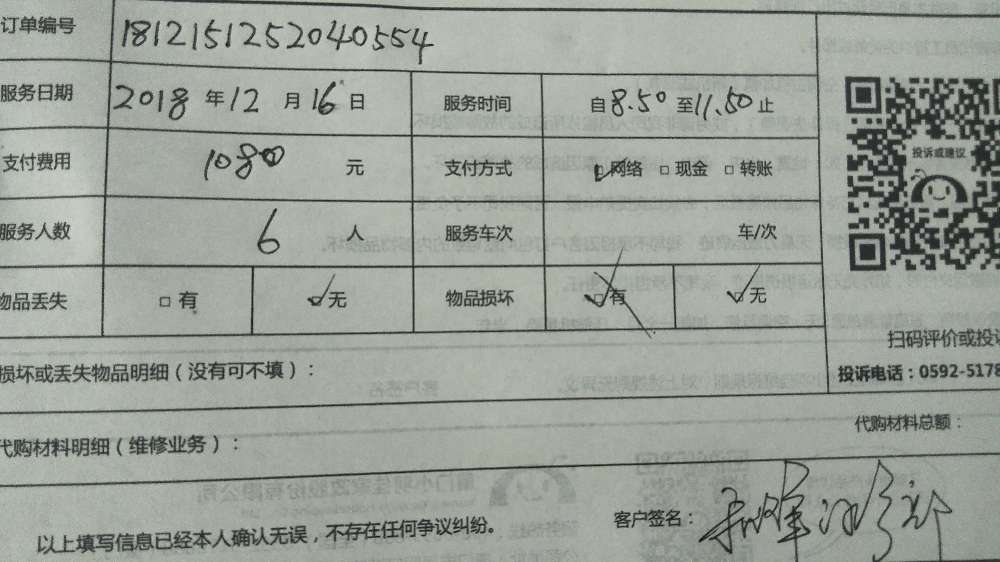 订单编号 1812151252040554
服务日期 2018 年 12 月 16 日 服务时间 自 8.50 至 11.50 止
投诉或建议
支付费用 1080 元 支付方式 网络 □ 现金 □ 转账
服务人数 6 人 服务车次 车/次
物品丢失 □ 有 ☑ 无 物品损坏 有 ☑ 无
扫码评价或投
损坏或丢失物品明细（没有可不填）：
投诉电话：0592-5178
代购材料明细（维修业务）：
代购材料总额：
以上填写信息已经本人确认无误，不存在任何争议纠纷。
客户签名：